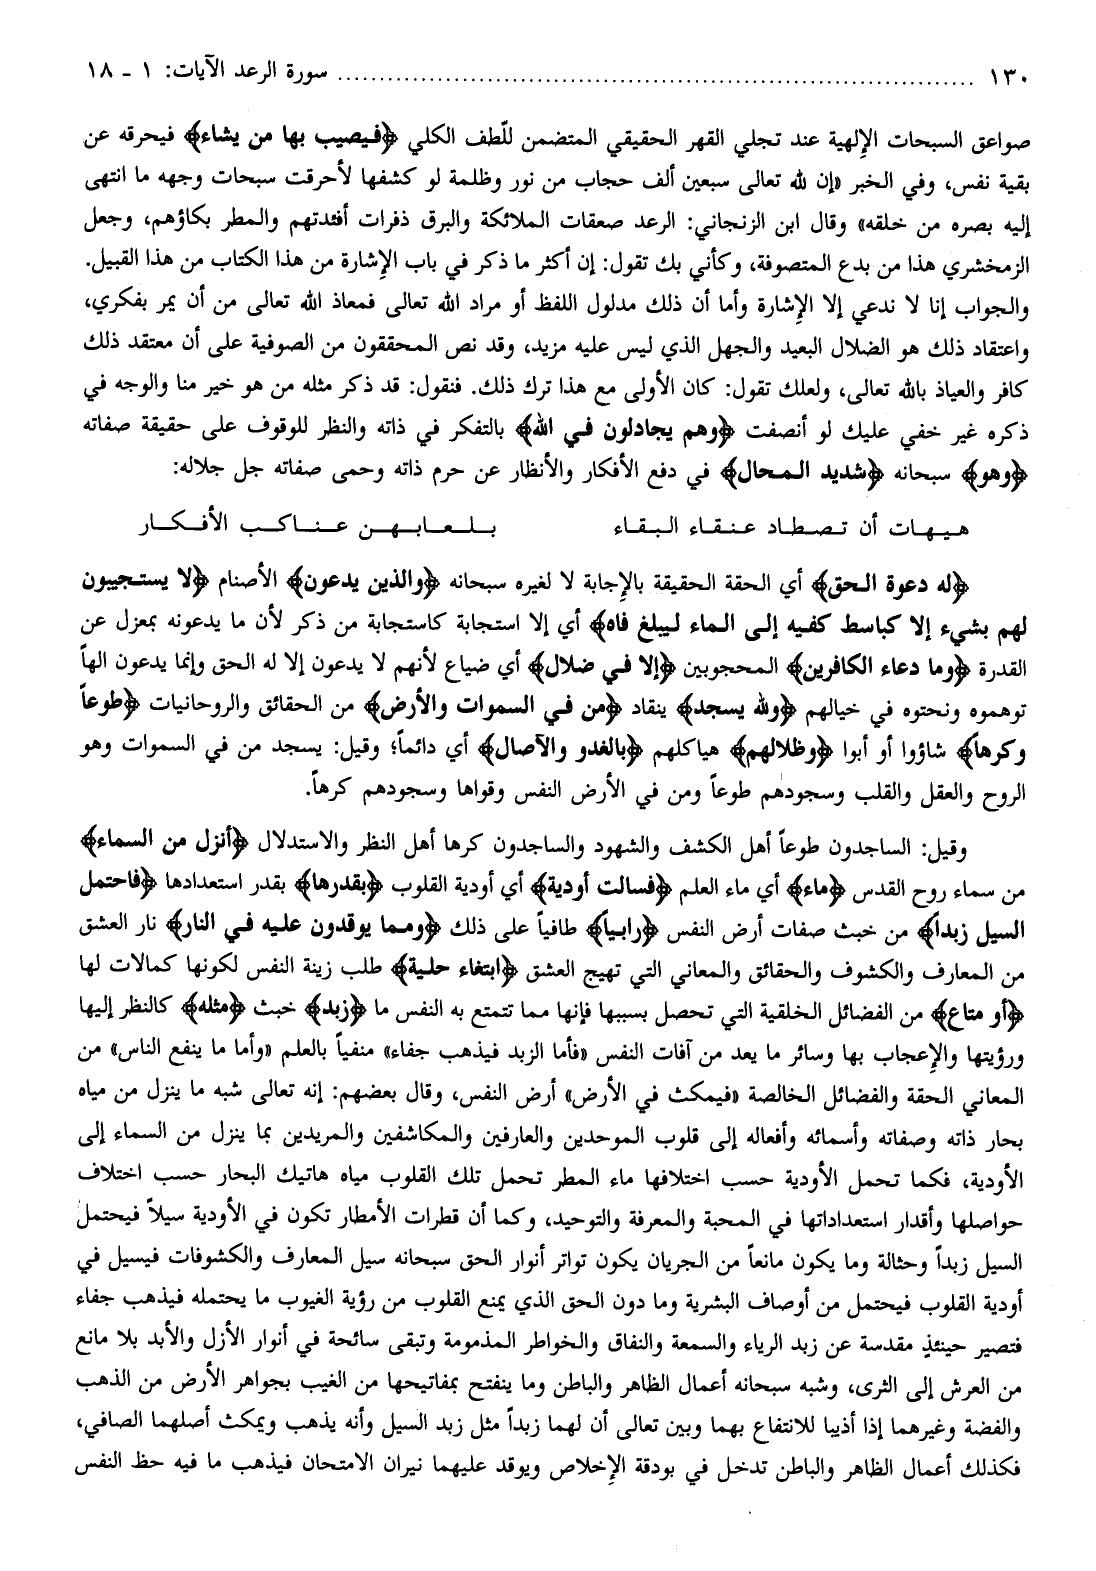 ١٣٠ ........................................................................ سورة الرعد الآيات: ١ - ١٨
صواعق السبحات الإلهية عند تجلي القهر الحقيقي المتضمن للّطف الكلي ﴿فيصيب بها من يشاء﴾ فيحرقه عن
بقية نفس، وفي الخبر «إن لله تعالى سبعين ألف حجاب من نور وظلمة لو كشفها لأحرقت سبحات وجهه ما انتهى
إليه بصره من خلقه» وقال ابن الزنجاني: الرعد صعقات الملائكة والبرق ذفرات أفئدتهم والمطر بكاؤهم، وجعل
الزمخشري هذا من بدع المتصوفة، وكأني بك تقول: إن أكثر ما ذكر في باب الإشارة من هذا الكتاب من هذا القبيل.
والجواب إنا لا ندعي إلا الإشارة وأما أن ذلك مدلول اللفظ أو مراد الله تعالى فمعاذ الله تعالى من أن يمر بفكري،
واعتقاد ذلك هو الضلال البعيد والجهل الذي ليس عليه مزيد، وقد نص المحققون من الصوفية على أن معتقد ذلك
كافر والعياذ بالله تعالى، ولعلك تقول: كان الأولى مع هذا ترك ذلك. فنقول: قد ذكر مثله من هو خير منا والوجه في
ذكره غير خفي عليك لو أنصفت ﴿وهم يجادلون في الله﴾ بالتفكر في ذاته والنظر للوقوف على حقيقة صفاته
﴿وهو﴾ سبحانه ﴿شديد المحال﴾ في دفع الأفكار والأنظار عن حرم ذاته وحمى صفاته جل جلاله:
هيهات أن تصطاد عنقاء البقاء بلعابهن عناكب الأفكار
﴿له دعوة الحق﴾ أي الحقة الحقيقة بالإجابة لا لغيره سبحانه ﴿والذين يدعون﴾ الأصنام ﴿لا يستجيبون
لهم بشيء إلا كباسط كفيه إلى الماء ليبلغ فاه﴾ أي إلا استجابة كاستجابة من ذكر لأن ما يدعونه بمعزل عن
القدرة ﴿وما دعاء الكافرين﴾ المحجوبين ﴿إلا في ضلال﴾ أي ضياع لأنهم لا يدعون إلا له الحق وإنما يدعون الهاً
توهموه ونحتوه في خيالهم ﴿ولله يسجد﴾ ينقاد ﴿من في السموات والأرض﴾ من الحقائق والروحانيات ﴿طوعاً
وكرهاً﴾ شاؤوا أو أبوا ﴿وظلالهم﴾ هياكلهم ﴿بالغدو والآصال﴾ أي دائماً؛ وقيل: يسجد من في السموات وهو
الروح والعقل والقلب وسجودهم طوعاً ومن في الأرض النفس وقواها وسجودهم كرهاً.
وقيل: الساجدون طوعاً أهل الكشف والشهود والساجدون كرها أهل النظر والاستدلال ﴿أنزل من السماء﴾
من سماء روح القدس ﴿ماء﴾ أي ماء العلم ﴿فسالت أودية﴾ أي أودية القلوب ﴿بقدرها﴾ بقدر استعدادها ﴿فاحتمل
السيل زبداً﴾ من خبث صفات أرض النفس ﴿رابياً﴾ طافياً على ذلك ﴿ومما يوقدون عليه في النار﴾ نار العشق
من المعارف والكشوف والحقائق والمعاني التي تهيج العشق ﴿ابتغاء حلية﴾ طلب زينة النفس لكونها كمالات لها
﴿أو متاع﴾ من الفضائل الخلقية التي تحصل بسببها فإنها مما تتمتع به النفس ما ﴿زبد﴾ خبث ﴿مثله﴾ كالنظر إليها
ورؤيتها والإعجاب بها وسائر ما يعد من آفات النفس «فأما الزبد فيذهب جفاء» منفياً بالعلم «وأما ما ينفع الناس» من
المعاني الحقة والفضائل الخالصة «فيمكث في الأرض» أرض النفس، وقال بعضهم: إنه تعالى شبه ما ينزل من مياه
بحار ذاته وصفاته وأسمائه وأفعاله إلى قلوب الموحدين والعارفين والمكاشفين والمريدين بما ينزل من السماء إلى
الأودية، فكما تحمل الأودية حسب اختلافها ماء المطر تحمل تلك القلوب مياه هاتيك البحار حسب اختلاف
حواصلها وأقدار استعداداتها في المحبة والمعرفة والتوحيد، وكما أن قطرات الأمطار تكون في الأودية سيلاً فيحتمل
السيل زبداً وحثالة وما يكون مانعاً من الجريان يكون تواتر أنوار الحق سبحانه سيل المعارف والكشوفات فيسيل في
أودية القلوب فيحتمل من أوصاف البشرية وما دون الحق الذي يمنع القلوب من رؤية الغيوب ما يحتمله فيذهب جفاء
فتصير حينئذٍ مقدسة عن زبد الرياء والسمعة والنفاق والخواطر المذمومة وتبقى سائحة في أنوار الأزل والأبد بلا مانع
من العرش إلى الثرى، وشبه سبحانه أعمال الظاهر والباطن وما ينفتح بمفاتيحها من الغيب بجواهر الأرض من الذهب
والفضة وغيرهما إذا أذيبا للانتفاع بهما وبين تعالى أن لهما زبداً مثل زبد السيل وأنه يذهب ويمكث أصلهما الصافي،
فكذلك أعمال الظاهر والباطن تدخل في بودقة الإخلاص ويوقد عليهما نيران الامتحان فيذهب ما فيه حظ النفس